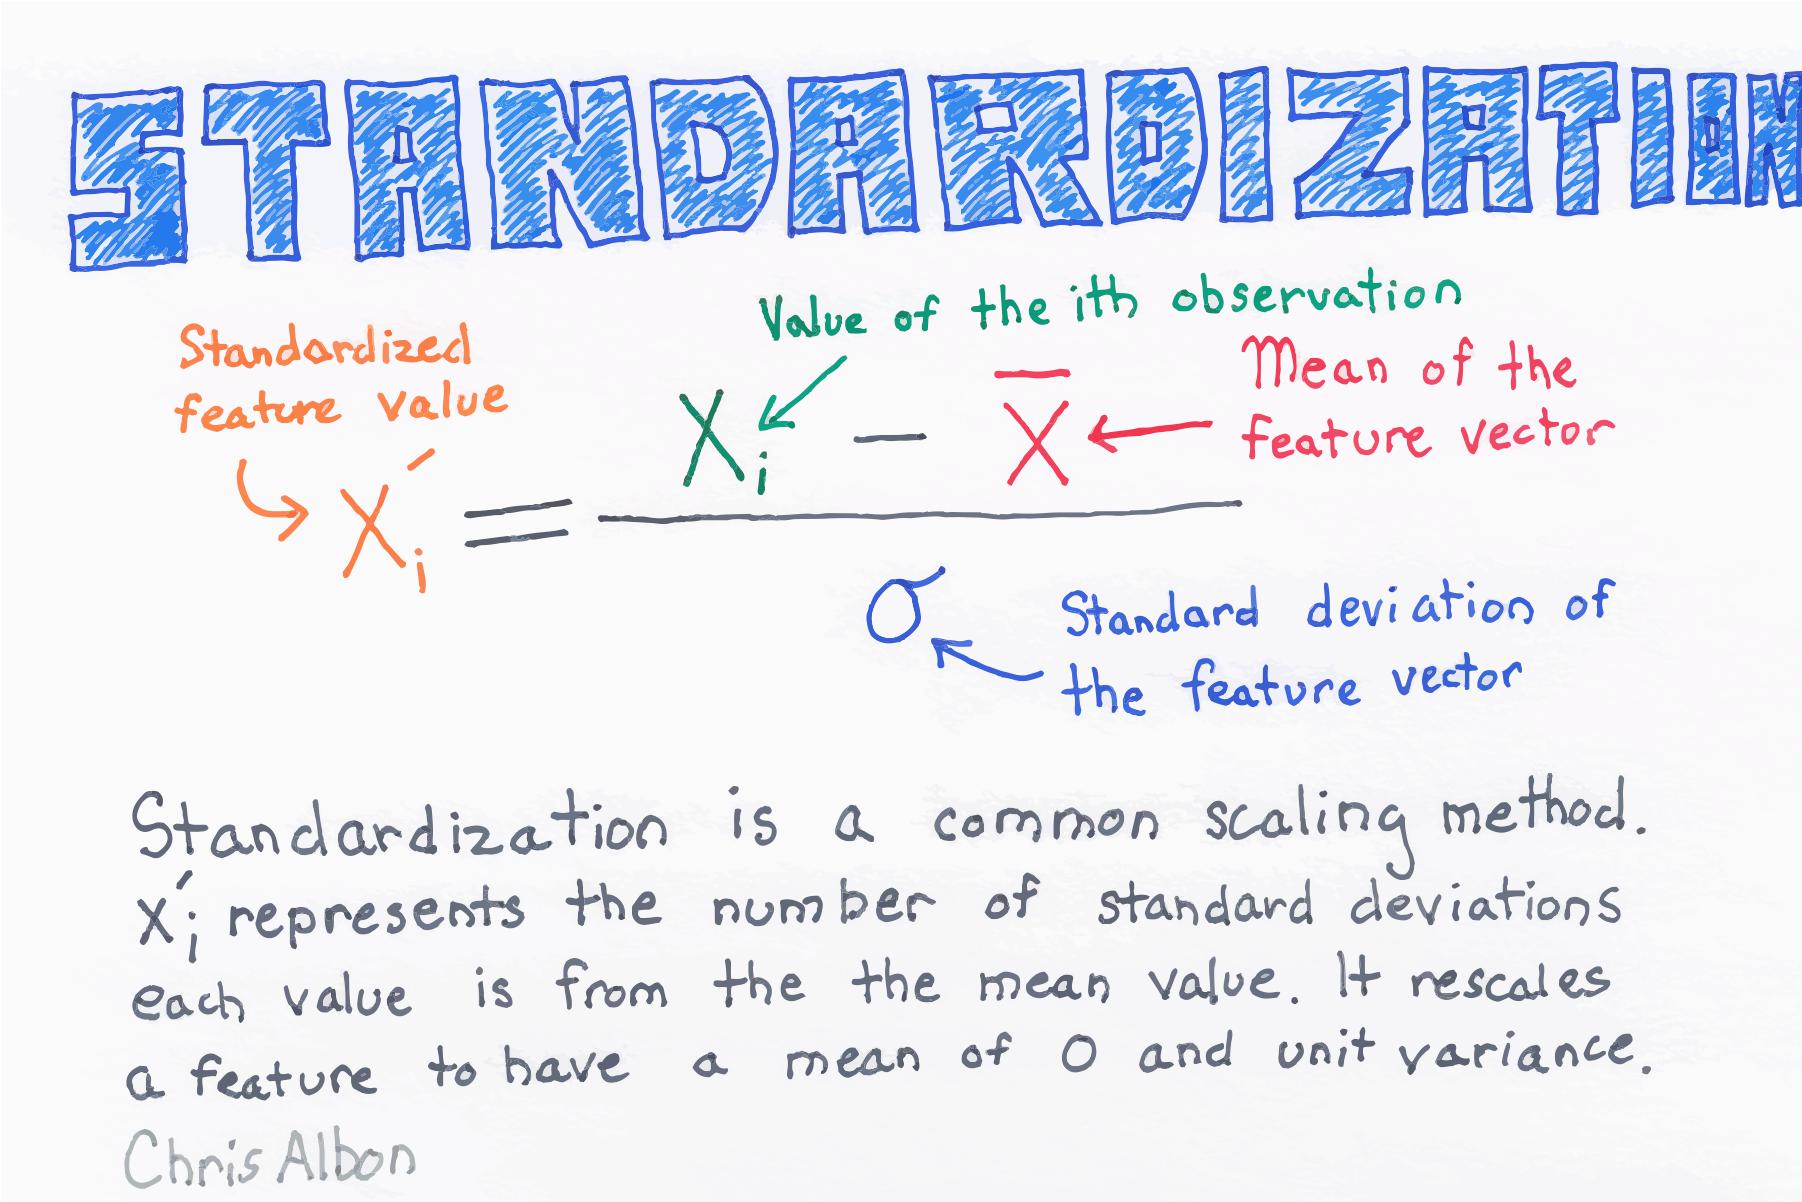 STANDARDIZATION
Value of the ith observation
Standardized
feature value
Mean of the
feature vector
X′i = (Xi − X̄) / σ
Standard deviation of
the feature vector
Standardization is a common scaling method.
X′i represents the number of standard deviations
each value is from the the mean value. It rescales
a feature to have a mean of 0 and unit variance.
Chris Albon